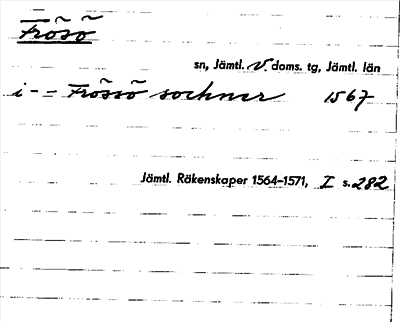 Frösö
sn, Jämtl. V. doms. tg, Jämtl. län
i - - Frössö sochner 1567
Jämtl. Räkenskaper 1564–1571, I s. 282